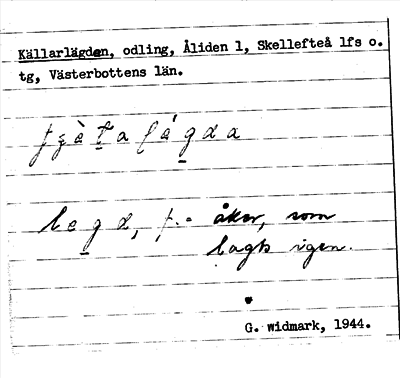 Källarlägden, odling, Åliden 1, Skellefteå lfs o.
tg, Västerbottens län.
legd, f. = åker, som
lagts igen.
G. Widmark, 1944.